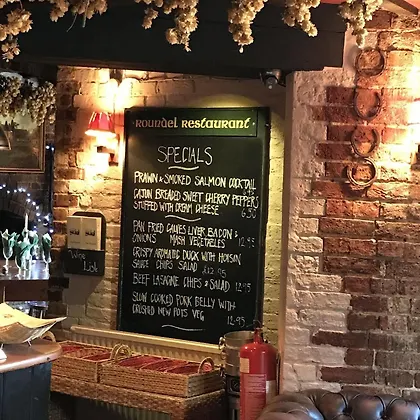 Roundel Restaurant
SPECIALS
PRAWN & SMOKED SALMON COCKTAIL
CAJUN BREADED SWEET CHERRY PEPPERS
STUFFED WITH CREAM CHEESE 6.50
PAN FRIED CALVES LIVER BACON &
ONIONS MASH VEGETABLES 12.95
CRISPY AROMATIC DUCK WITH HOISON
SAUCE CHIPS SALAD £12.95
BEEF LASAGNE CHIPS & SALAD
SLOW COOKED PORK BELLY WITH
CRUSHED NEW POTS VEG
12.95
Wine
List